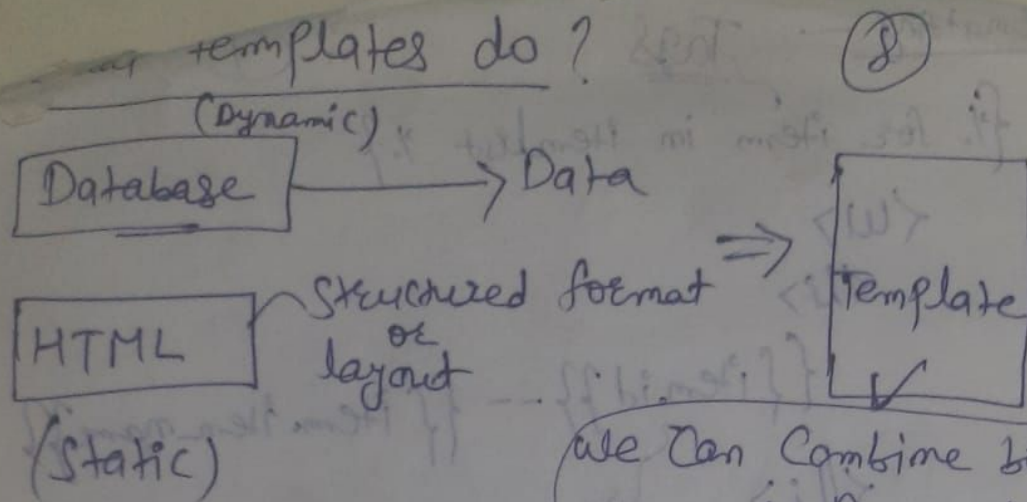 templates do ?
8
(Dynamic)
Database
Data
HTML
Structured format
or
layout
Template
(Static)
We Can Combine b